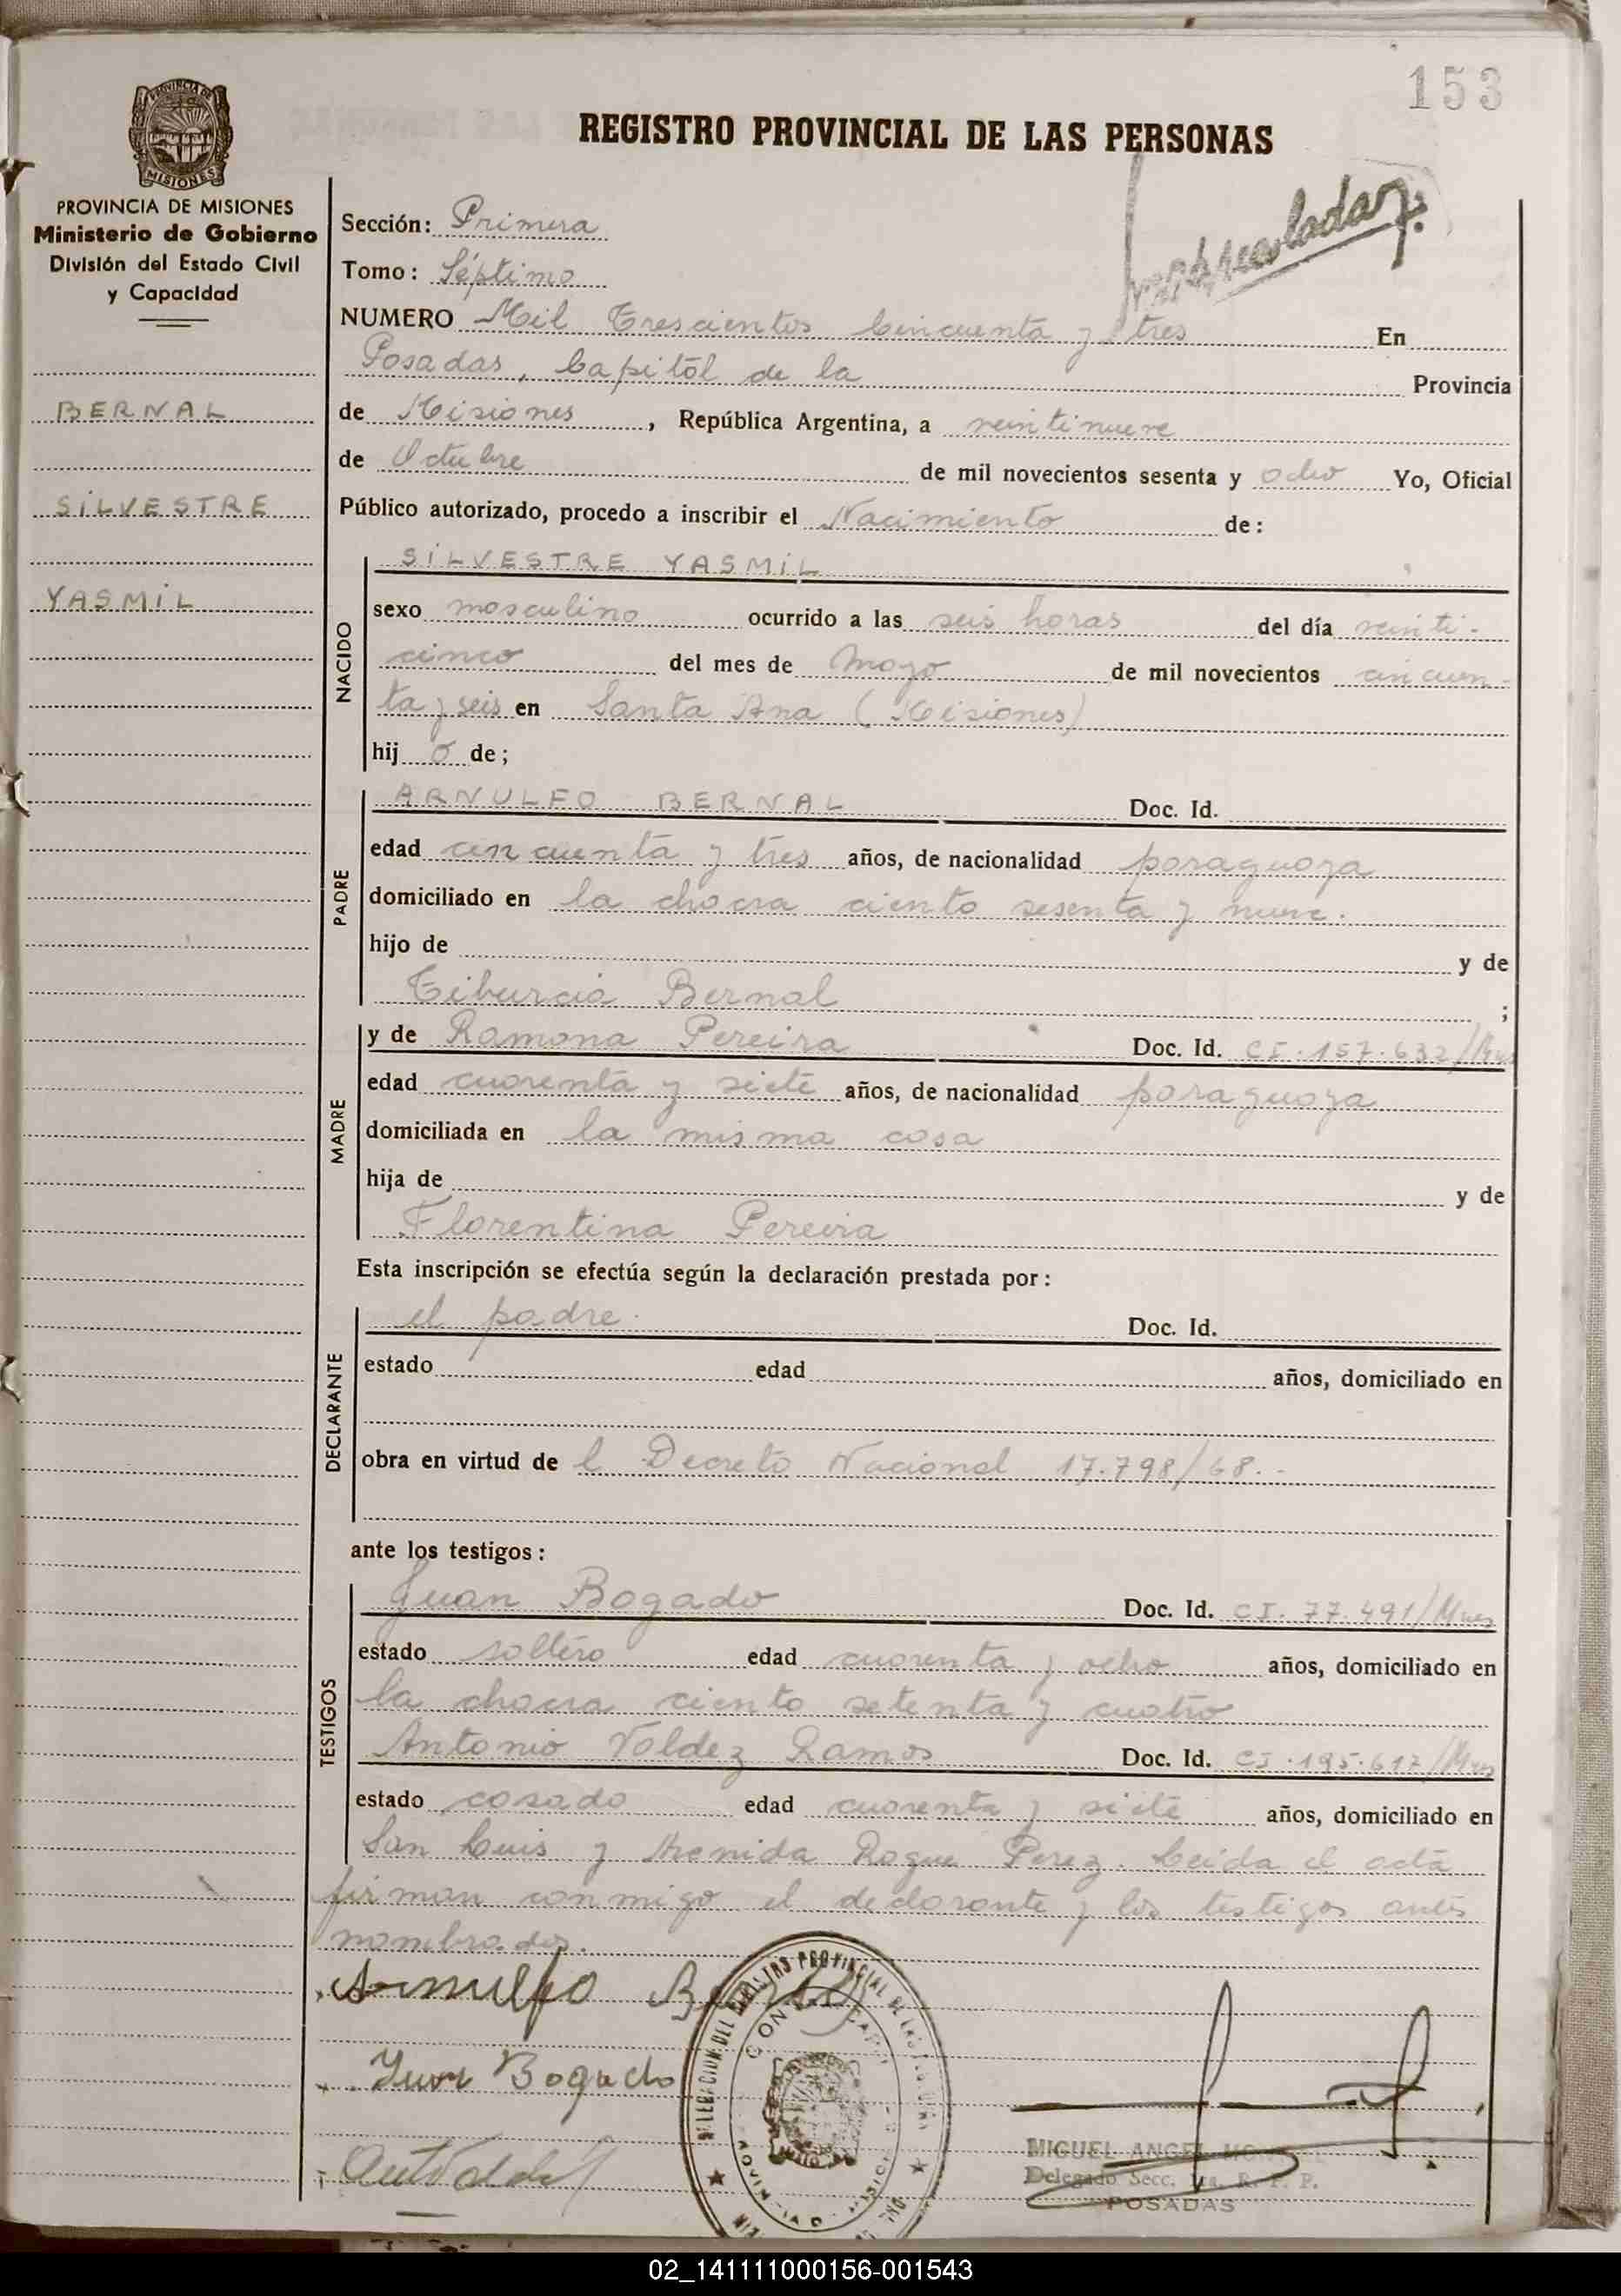 153
REGISTRO PROVINCIAL DE LAS PERSONAS
PROVINCIA DE
MISIONES
PROVINCIA DE MISIONES
Ministerio de Gobierno
División del Estado Civil
y Capacidad
BERNAL
SILVESTRE
YASMIL
Sección: Primera
Tomo: Séptimo
NUMERO Mil Trescientos Cincuenta y tres En
Posadas, Capitál de la Provincia
de Misiones, República Argentina, a veintinueve
de Octubre de mil novecientos sesenta y ocho Yo, Oficial
Público autorizado, procedo a inscribir el Nacimiento de:
NACIDO
SILVESTRE YASMIL
sexo masculino ocurrido a las seis horas del día veinti-
cinco del mes de Mayo de mil novecientos cincuen-
ta y seis en Santa Ana (Misiones)
hij o de;
PADRE
ARNULFO BERNAL Doc. Id.
edad cincuenta y tres años, de nacionalidad paraguaya
domiciliado en la chacra ciento sesenta y nueve.
hijo de y de
Tiburcia Bernal ;
MADRE
y de Ramona Pereira Doc. Id. CI. 157.632/Mnes
edad cuarenta y siete años, de nacionalidad paraguaya
domiciliada en la misma casa
hija de y de
Florentina Pereira
Esta inscripción se efectúa según la declaración prestada por:
DECLARANTE
el padre. Doc. Id.
estado edad años, domiciliado en
obra en virtud de l Decreto Nacional 17.798/68.-
ante los testigos:
TESTIGOS
Juan Bogado Doc. Id. CI. 77.491/Mnes
estado soltero edad cuarenta y ocho años, domiciliado en
la chacra ciento setenta y cuatro
Antonio Valdez Ramos Doc. Id. CI. 195.617/Mnes
estado casado edad cuarenta y siete años, domiciliado en
San Luis y Avenida Roque Perez. Leida el acta
firman conmigo el declarante y los testigos antes
nombrados.
Arnulfo
Juan Bogado
MIGUEL ANGEL
Delegado Secc. 1ra. R. P. P.
POSADAS
02_141111000156-001543